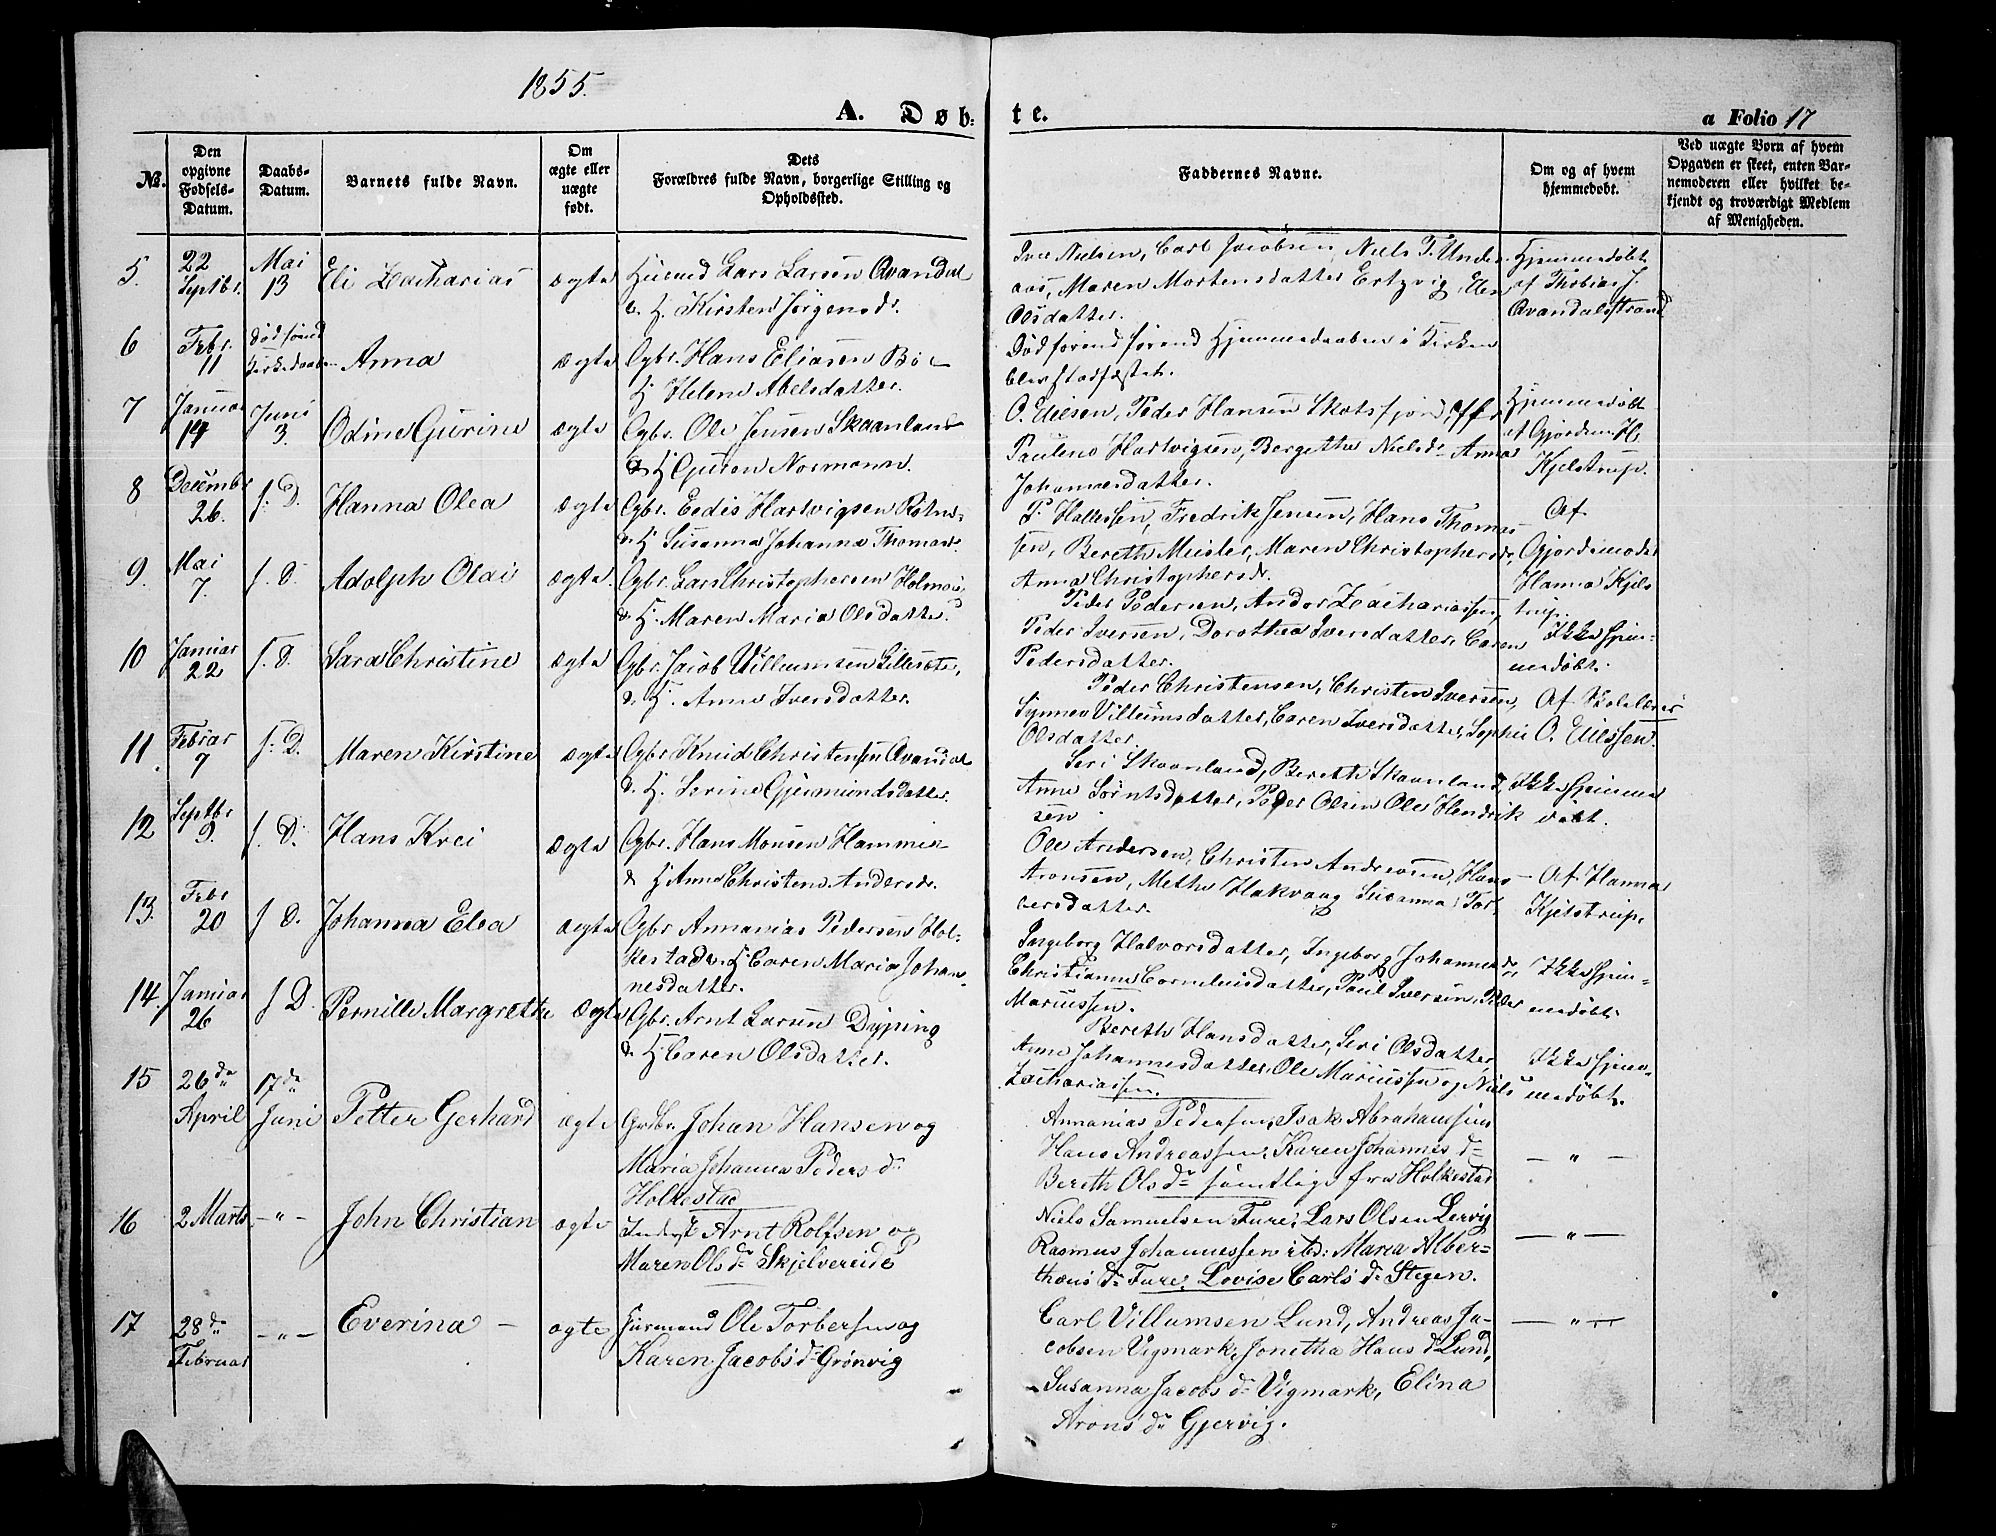 1855.
A. Døb-
te.
a Folio 17
No.
Den opgivne Fødsels-Datum.
Daabs-Datum.
Barnets fulde Navn.
Om ægte eller uægte født.
Dets Forældres fulde Navn, borgerlige Stilling og Opholdssted.
Faddernes Navne.
Om og af hvem hjemmedøbt.
Ved uægte Børn af hvem Opgaven er skeet, enten Barnemoderen eller hvilket bekjendt og troværdigt Medlem af Menigheden.
5 22 Septbr. Mai 13 Eli Zacharias ægte Huusmd Lars Larsen Qvandal
o. H. Kirsten Jørgensdr.
Iver Nielsen, Carl Jacobsen, Niels T. Under-
aas, Maren Mortensdatter Ertzvig, Elen
Olsdatter.
Hjemmedøbt
af Thobias J.
Qvandalstrand
6 Febr. 11 død førend Kirkedaaben Anna ægte Ogbr. Hans Eliasen Bö
H Helene Abelsdatter.
Død førend førend Hjemmedaaben i Kirken
blev stadfæstet.
7 Januar 14 Juni 3. Odine Gurine ægte Ogbr. Ole Jensen Skaanland
& H Guren Normann.
O. Ellesen, Peder Hansen Skotsfjord,
Pauline Hartvigsen, Bergethe Nielsdr. Anna
Johannesdatter.
Hjemmedøbt
af Gjordem. H.
Kjelstrup.
8 Decembr 26. s. D. Hanna Olea ægte Ogbr. Eedis Hartvigsen
& H Susanna Johanna Thomasdr.
P. Hallesen, Fredrik Jensen, Hans Thomas-
sen, Bereth Meisler, Maren Christophersdr,
Anna Christophersdr.
Af
Gjordemoder
Hanna Kjels
trup.
9. Mai 7. s. D. Adolph Olai ægte Ogbr. Lars Christophersen Holmøie
& H. Maren Maria Olsdatter.
Peder Pedersen, Andor Zachariassen,
Peder Iversen, Dorothea Iversdatter, Caren
Pedersdatter.
Ikke hjem-
medøbt.
10 Januar 22 s. D. Sara Christine ægte Ogbr. Jacob Villumsen
& H. Anne Iversdatter.
Peder Christensen, Christen Iversen,
Synnev Villumsdatter, Caren Iversdatter, Sophie
Olsdatter.
Af Skolelærer
O. Ellessen.
11. Februar 7 s: D. Maren Kirstine ægte Ogbr Knud Christensen Qvandal
& H. Sorine Gjermundsdatter.
Seri Skaanland, Bereth Skaanland,
Anne Sørntsdatter, Peder Olsen Ole Hendrik
sen
Ikke hjemme
døbt.
12 Septbr 9. s. D. Hans Krei ægte Ogbr. Hans Monsen Hammer
& H Anne Christen. Andersdr.
Ole Andersen, Christen Andersen, Hans
Aronsen, Methe Hakvaag Susanna Tor-
bersdatter.
- Af Hanna
Kjelstrup.
13. Febr 20 s D. Johanna Elea ægte Ogbr Annanias Pedersen Hol-
kestad & H Caren Maria Johan-
nesdatter.
Ingeborg Halvorsdatter, Ingeborg Johannesdr,
Christianne Corneliusdatter, Paul Iversen, Peder
Mariussen.
Ikke hjem-
medøbt
14 Januar 26 s D. Pernille Margrethe ægte Ogbr. Arnt Larsen Dyping
& H Caren Olsdatter.
Bereth Hansdatter, Seri Olsdatter,
Anne Johannesdatter, Ole Mariussen og Niels
Zachariassen.
Ikke hjem-
medøbt.
15 26de April 17de Juni Petter Gerhard ægte Grbr. Johan Hansen og
Maria Johanna Peders dr
Holkestad
Annanias Pedersen, Isak Abrahamsen
Hans Andreassen, Karen Johannes dr
Bereth Ols dr samtlige fra Holkestad
— „ —
16 2 Marts - „ - John Christian ægte Inderst Arnt Rolfsen og
Maren Ols dr Skjelvereide
Niels Samuelsen Fure, Lars Olsen Lervig
Rasmus Johannessen ibd: Maria Alber=
thæus dr Fure, Lovise Carls dr Stegen.
— „ —
17 28de Februar - „ - Everina - ægte Huusmand Ole Torbersen og
Karen Jacobs dr Grønvig
Carl Villumsen Lund, Andreas Ja-
cobsen Vigmark, Jonetha Hans d Lund,
Susanna Jacobs dr Vigmark, Elina
Arons dr Gjervig.
— „ —